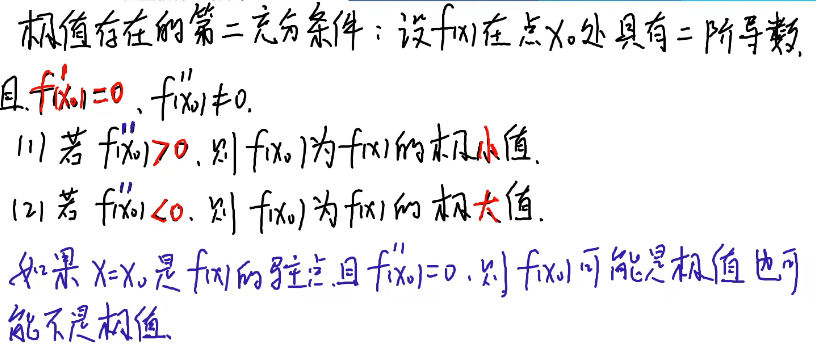 极值存在的第二充分条件：设f(x)在点x₀处具有二阶导数,
且f'(x₀)=0、f''(x₀)≠0.
(1) 若 f''(x₀)>0, 则f(x₀)为f(x)的极小值.
(2) 若 f''(x₀)<0, 则 f(x₀)为f(x)的极大值.
如果 x=x₀是f(x)的驻点且f''(x₀)=0, 则f(x₀)可能是极值也可
能不是极值.